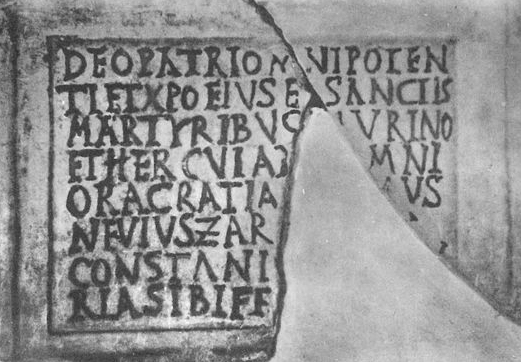 DEO PATRI OMNIPOTEN
TI ET XPO EIVS E SANCTIS
MARTYRIBVS TAVRINO
ET HERCVLIA OMNI
ORA CRATIA
NEVIVS ZAR
CONSTANI
RIAS IBI FF